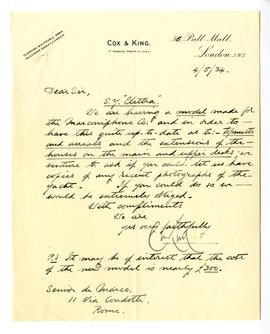 COX & KING.
35 Pall Mall.
London, S.W.1
4/5/34.
Dear Sir,
S.Y. "Elettra"
We are having a model made for
the Marconiphone Co. and in order to
have this quite up-to-date as to:- t/masts
and aerials and the extensions of the
houses on the main and upper decks we
venture to ask if you could let us have
copies of any recent photographs of the
yacht. If you could do so we
would be extremely obliged.
With compliments
We are
yrs very faithfully
P.S. It may be of interest that the cost
of the new model is nearly £300.
Senior de Marco,
11 Via Condotti
Rome.